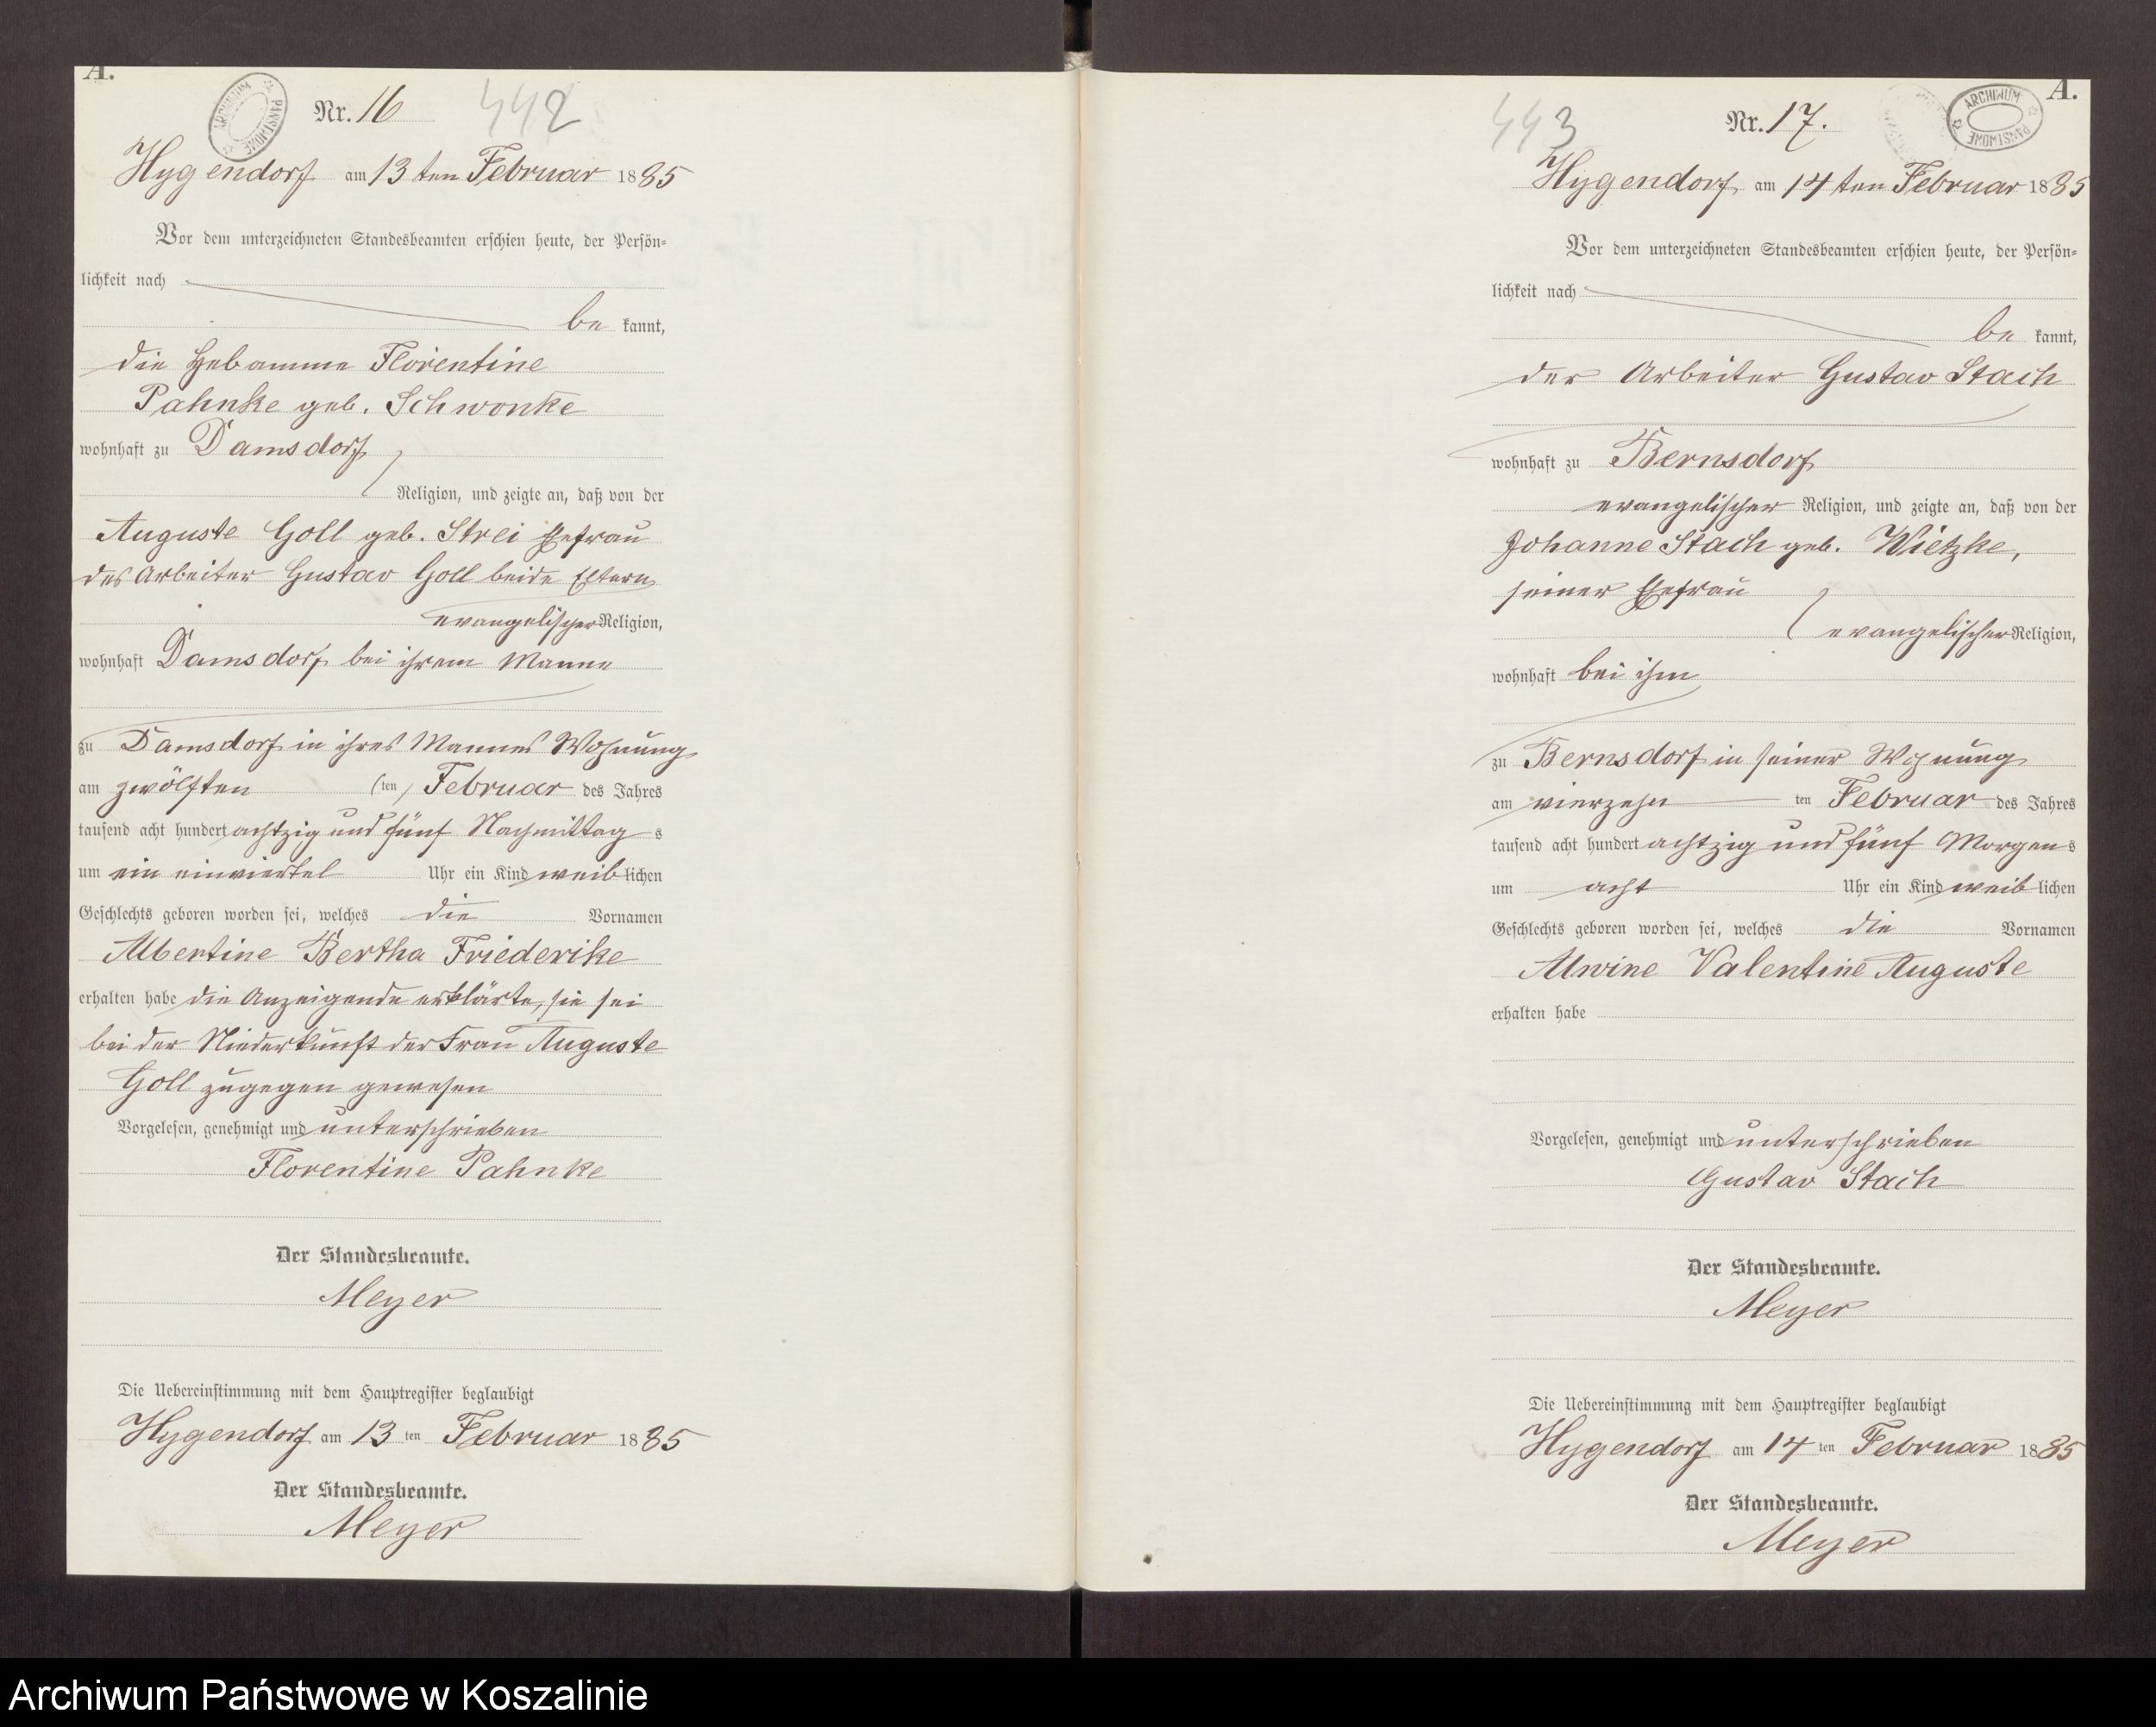 A.
Nr. 16
442
Hygendorf am 13 ten Februar 1885
Vor dem unterzeichneten Standesbeamten erschien heute, der Persön=
lichkeit nach
be kannt,
die Hebamme Florentine
Pahnke geb. Schwonke
wohnhaft zu Damsdorf
Religion, und zeigte an, daß von der
Auguste Goll geb. Strei Ehefrau
des Arbeiter Gustav Goll beide Eltern
evangelischer Religion,
wohnhaft Damsdorf bei ihrem Manne
zu Damsdorf in ihres Mannes Wohnung
am zwölften (ten) Februar des Jahres
tausend acht hundert achtzig und fünf Nachmittag s
um ein einviertel Uhr ein Kind weib lichen
Geschlechts geboren worden sei, welches die Vornamen
Albertine Bertha Friederike
erhalten habe die Anzeigende erklärte, sie sei
bei der Niederkunft der Frau Auguste
Goll zugegen gewesen
Vorgelesen, genehmigt und unterschrieben
Florentine Pahnke
Der Standesbeamte.
Meyer
Die Uebereinstimmung mit dem Hauptregister beglaubigt
Hygendorf am 13 ten Februar 1885
Der Standesbeamte.
Meyer
A.
443
Nr. 17.
ARCHIWUM PAŃSTWOWE
Hygendorf am 14 ten Februar 1885
Vor dem unterzeichneten Standesbeamten erschien heute, der Persön=
lichkeit nach
be kannt,
der Arbeiter Gustav Stach
wohnhaft zu Bernsdorf
evangelischer Religion, und zeigte an, daß von der
Johanne Stach geb. Wietzke,
seiner Ehefrau
evangelischer Religion,
wohnhaft bei ihm
zu Bernsdorf in seiner Wohnung
am vierzehn ten Februar des Jahres
tausend acht hundert achtzig und fünf Morgen s
um acht Uhr ein Kind weib lichen
Geschlechts geboren worden sei, welches die Vornamen
Alwine Valentine Auguste
erhalten habe
Vorgelesen, genehmigt und unterschrieben
Gustav Stach
Der Standesbeamte.
Meyer
Die Uebereinstimmung mit dem Hauptregister beglaubigt
Hygendorf am 14 ten Februar 1885
Der Standesbeamte.
Meyer
Archiwum Państwowe w Koszalinie